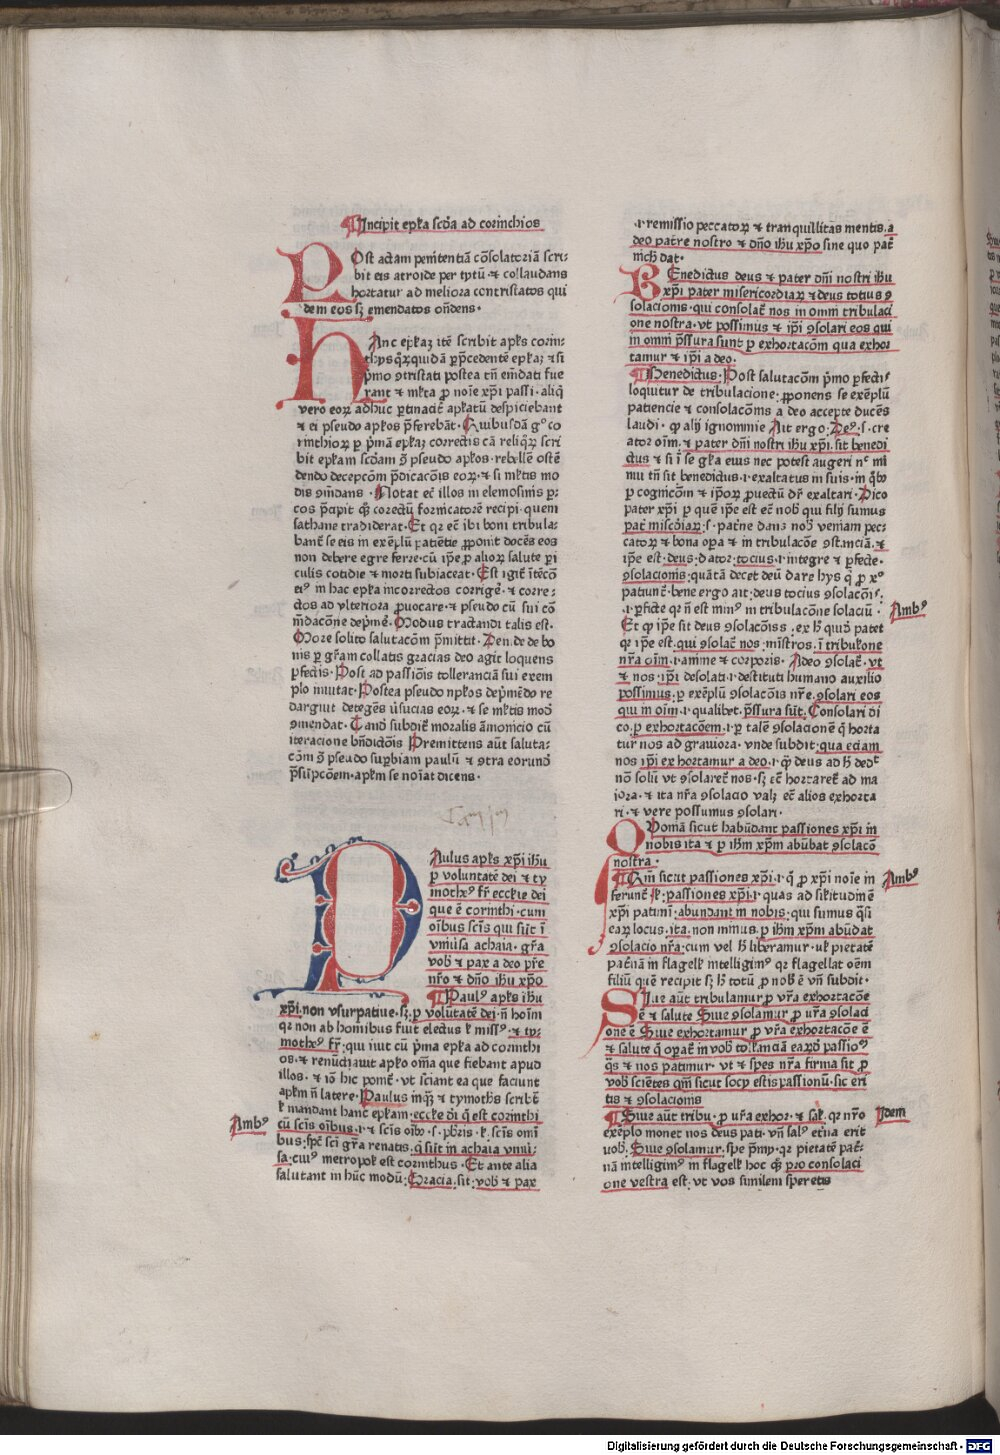 ¶Incipit ep̄ka scd̄a ad corinchios
POst actam penitentiā cōsolatoriā scri⸗
bit eis atroide per tytū · ⁊ collaudans
hortatur ad meliora contristatos qui
dem eos sꝫ emendatos on̄dens ·
hAnc ep̄kaꝫ itē scribit apk̄s corin⸗
thijs
p̄mo ꝯtristati postea tn̄ em̄dati fue
rant ⁊ mk̄ta ꝓ noīe xp̄i passi · aliq̄
vero eoꝝ adhuc ꝑtinacit̄ apk̄atū despiciebant
⁊ ei pseudo apk̄os p̄ferebāt · Quibusdā gͦ co
rinthioꝝ ꝑ p̄mā ep̄kaꝫ correctis cā reliq̄ꝝ scri
bit ep̄kam scd̄am ꝯ̄ pseudo apk̄os · rebellē ostē
dendo decepcōm p̄dicacōis eoꝝ · ⁊ si mk̄tis mo
dis ꝯm̄dans · Notat ec̄ illos in elemosinis ꝑ⸗
cos p̄cipit ꝙ̄ corectū fornicatorē recipi · quem
sathane tradiderat · Et qꝛ ec̄ ibi boni tribula⸗
bant̄ se eis in exēplū patiētie ꝓponit docēs eos
non debere egre ferre · cū ip̄e ꝓ alioꝝ salute ꝑi
culis cotidie ⁊ morti subiaceat · Est igit̄ ītēcō
eiꝰ in hac ep̄ka incorrectos corrigē · ⁊ corre⸗
ctos ad vlteriora ꝓuocare · ⁊ pseudo cū sui cō
m̄dacōne dep̄mē · Modus tractandi talis est ·
More solito salutacōm p̄mittit · Den. de de bo
nis ꝑ gr̄am collatis gracias deo agit loquens
ꝑfectis · Post ad passiōis tolleranciā sui exem
plo inuitat · Postea pseudo apk̄os dep̄mēdo re
darguit detegēs v̄sucias eoꝝ · ⁊ se mk̄tis mod̄
ꝯmendat · Tand̄ subdit̄ moralis āmonicio cū
iteracione bn̄dictōis Premittens aūt saluta⸗
cōm ꝯ̄ pseudo suꝑbiam paulū ⁊ ꝯtra eorund̄
p̄sūpcōem · apk̄m se noīat dicens ·
PAulus apk̄s xp̄i ih̄u
ꝑ voluntatē dei ⁊ ty
motheꝰ fr̄ ecclie dei
que ē corinthi · cum
oībus scīs qui sūt ī
vniūsa achaia · gr̄a
vob̄ ⁊ pax a deo pr̄e
nr̄o ⁊ dn̄o ih̄u xp̄o
¶Paulꝰ apk̄s ih̄u
xp̄i . non vsurpatiue . sꝫ . ꝑ volūtatē dei . n̄ hoīm
qꝛ non ab homibus fuit electus k̄ missꝰ · ⁊ ty⸗
motheꝰ fr̄ · qui iuit cū p̄ma ep̄ka ad corinthi
os · ⁊ renūciauit apk̄o om̄a que fiebant apud
illos · ⁊ iō hic ponit̄ · vt sciant ea que faciunt
apk̄m n̄ latere · Paulus inq̄ꝫ ⁊ tymoths scribt̄
k̄ mandant hanc ep̄kam · eccke di q̄ est corinthi
Ambꝰ
cū scīs oībus . ⁊ scīs oīb̄ · s · pb̄ris · k̄ . scīs omī
bus · spc̄ sci gr̄a renatis . q̄ sūt in achaia vniū⸗
sa . cuiꝰ metropok̄ est corinthus · Et ante alia
salutant in hūc modū : Gracia . sit . vob̄ ⁊ pax
.i. remissio peccatoꝝ ⁊ tranquillitas mentis . a
deo patre nostro ⁊ dn̄o ih̄u xp̄o sine quo pat̄
nichil dat ·
BEnedictus deus ⁊ pater dn̄i nostri ih̄u
xp̄i pater misericordiaꝝ ⁊ deus totius ꝯ
solacionis · qui consolat̄ nos in omni tribulaci
one nostra · vt possimus ⁊ ip̄i ꝯsolari eos qui
in omni p̄ssura sunt ꝑ exhortacōm qua exhor
tamur ⁊ ip̄i a deo ·
¶Benedictus · Post salutacōm p̄mo ꝑfectiꝰ
loquitur de tribulacione : ꝓponens se exēplū
patiencie ⁊ consolacōms a deo accepte ducēs
laudi · ꝙ alij ignominie Ait ergo : Deꝰ . s . cre
ator oīm . ⁊ pater dn̄i nostri ih̄u xp̄i . sit benedi
ctus ⁊ si ī se gk̄a eius nec potest augeri nͨ mi
nui tn̄ sit benedictus . i . exaltatus in suis · in q̄bꝰ
ꝑ cognicōm ⁊ ip̄oꝝ ꝓuectū dr̄ exaltari · Dico
pater xp̄i ꝑ quē ip̄e est ec̄ nob̄ qui filij sumus
pat̄ misc̄diaꝝ · s · patr̄ne dans nob̄ veniam pec⸗
catoꝝ ⁊ bona oꝑa ⁊ in tribulacōe ꝯst.nciā . ⁊
ip̄e est · deus · dator · tocius · i · integre ⁊ ꝑfecte ·
ꝯsolacionis · quātā decet deū dare hys q̄ ꝓ xͦ
patiunt̄ · bene ergo ait : deus tocius ꝯsolacōīˢ ·
Ambꝰ
.i. ꝑfecte qꝛ n̄ est minꝰ in tribulacōne solaciū ·
Et ꝙ ip̄e sit deus ꝯsolacōiss . ex h̄ quoꝫ patet
qꝛ ip̄e est . qui ꝯsolat̄ nos · mīstros . ī tribuk̄one
nr̄a oīm . i . anime ⁊ corporis · Adeo ꝯsolat̄ · vt
⁊ nos · ip̄i desolati . i . destituti humano auxilio
possimus . ꝑ exēplū ꝯsolacōis nr̄e . ꝯsolari eos
qui in oīm . i . qualibet . p̄ssura sūt . Consolari di
co . ꝑ exhortacōem . i . ꝑ talē ꝯsolacionē q̄ horta
tur nos ad grauiora · vnde subdit · qua eciam
nos ip̄i exhortamur a deo . i . ꝙ deus ad h̄ dedͭ
nō solū vt ꝯsolaret̄ nos · sꝫ ec̄ hortaret̄ ad ma
iora · ⁊ ita nr̄a ꝯsolacio valꝫ ec̄ alios exhorta
ri · ⁊ vere possumus ꝯsolari ·
QVoniā sicut habūdant passiones xp̄i in
nobis ita ⁊ ꝑ ih̄m xp̄m abūbat ꝯsolacō
nostra ·
Ambꝰ
¶Qm̄ sicut passiones xp̄i . i · q̄ ꝓ xp̄i noīe in
ferunt̄ k̄ : passiones xp̄i . i · quas ad sik̄itudinē
xp̄i patimī : abundant in nobis · qui sumus q̄si
eaꝝ locus . ita . non minus . ꝑ ih̄m xp̄m abūdat
ꝯsolacio nr̄a · cum vel h̄ liberamur · uk̄ pietatē
pat̄nā in flagelk̄ intelligimꝰ qꝛ flagellat oēm
filiū quē recipit sꝫ h̄ totū ꝓ nob̄ ē vn̄ subdit ·
SIue aūt tribulamur ꝓ vr̄a exhortacōe
ē ⁊ salute Siue ꝯsolamur ꝓ vr̄a ꝯsolaci
one ē Siue exhortamur ꝓ vr̄a exhortacōe ē
⁊ salute q̄ oꝑat̄ in vob̄ tolk̄anciā earūd̄ passioꝰ
q̄s ⁊ nos patimur · vt ⁊ spes nr̄a firma sit ꝓ
vob̄ sciētes qm̄ sicut socy estis passionū · sic eri
tis ⁊ ꝯsolacionis
Idem
¶Siue aūt tribu · ꝓ vr̄a exhor · ⁊ sak̄ . qꝛ nr̄o
exēplo monet nos deus pati · vn̄ salꝰ etn̄a erit
vob̄ . Siue ꝯsolamur . spe p̄mij · qꝛ pietatē pat̄⸗
nā intelligimꝰ in flagelk̄ hoc q̄ꝫ pro consolaci
one vestra est . vt vos similem speretis
Digitalisierung gefördert durch die Deutsche Forschungsgemeinschaft - DFG